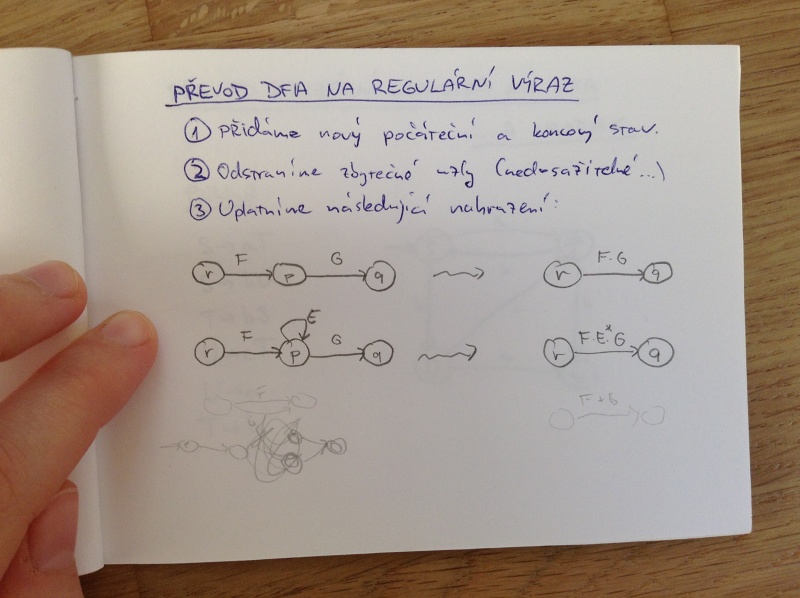 PŘEVOD DFA NA REGULÁRNÍ VÝRAZ
① Přidáme nový počáteční a koncový stav.
② Odstraníme zbytečné uzly (nedosažitelné...)
③ Uplatníme následující nahrazení:
F G F·G
r p q r q
E
F G F·E*·G
r p q r q
F F+G